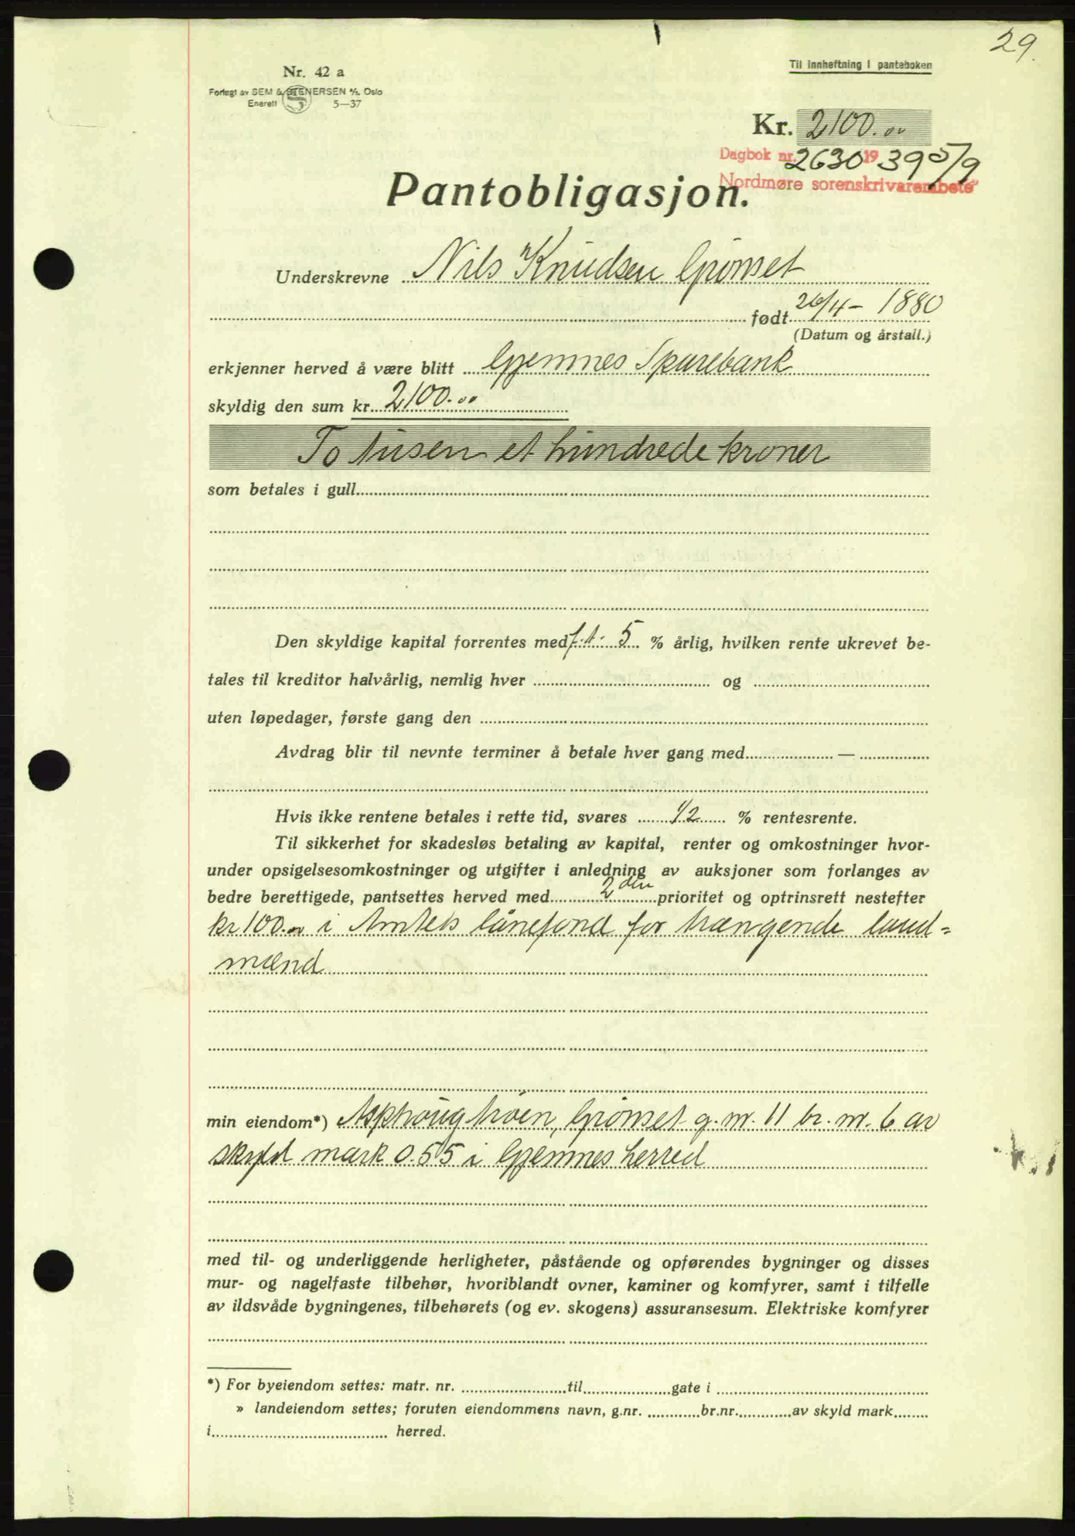 29.
Til innheftning i panteboken
Nr. 42 a
Forlagt av SEM & STENERSEN A/S, Oslo
Enerett 5—37
Kr. 2100.00
Dagbok nr. 2630 1939 5/9
Nordmøre sorenskriverembete
Pantobligasjon.
Underskrevne Nils Knudsen Grønset
født 26/4 - 1880
(Datum og årstall.)
erkjenner herved å være blitt Gjemnes Sparebank
skyldig den sum kr. 2100.00
To tusen et hundrede kroner
som betales i gull
Den skyldige kapital forrentes med f.t. 5 % årlig, hvilken rente ukrevet be-
tales til kreditor halvårlig, nemlig hver og
uten løpedager, første gang den
Avdrag blir til nevnte terminer å betale hver gang med —
Hvis ikke rentene betales i rette tid, svares 1/2 % rentesrente.
Til sikkerhet for skadesløs betaling av kapital, renter og omkostninger hvor-
under opsigelsesomkostninger og utgifter i anledning av auksjoner som forlanges av
bedre berettigede, pantsettes herved med 2den prioritet og optrinsrett nestefter
kr 100.00 i Amtets lånefond for trængende land=
mænd
min eiendom*) Asphaugtrøen, Grønset g. nr. 11 br. nr. 6 av
skyld mark 0.55 i Gjemnes herred
med til- og underliggende herligheter, påstående og opførendes bygninger og disses
mur- og nagelfaste tilbehør, hvoriblandt ovner, kaminer og komfyrer, samt i tilfelle
av ildsvåde bygningenes, tilbehørets (og ev. skogens) assuransesum. Elektriske komfyrer
*) For byeiendom settes: matr. nr. til gate i
» landeiendom settes; foruten eiendommens navn, g.nr. br.nr. av skyld mark
i herred.